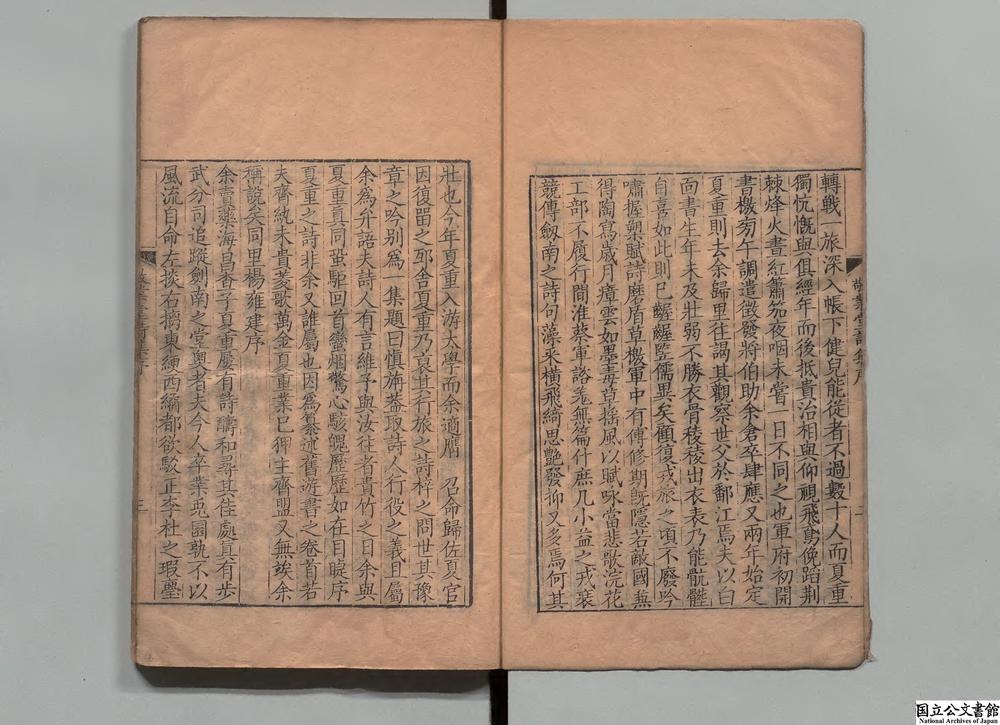 轉戰 旅深入帳下健兒能從者不過數十人而夏重
獨忼慨與俱經年而後抵貴治相與仰視飛鳶俛蹈荆
棘烽火晝紅簫笳夜咽未嘗一日不同之也軍府初開
書檄旁午調遣徵發將伯助余倉卒肆應又兩年始定
夏重則去余歸里往謁其觀察世父於鄱江焉夫以白
面書生年未及壯弱不勝衣骨稜稜出衣表乃能骯髒
自喜如此則已齷齪豎儒異矣顧復戎旅之頃不廢吟
嘯握槊賦詩磨盾草檄軍中有傅修期旣隱若敵國無
得陶寫歲月瘴雲如墨毒草搖風以賦咏當悲歌浣花
工部不履行間淮蔡軍諮羌無篇什庶几小益之戎裝
競傳劒南之詩句藻采橫飛綺思艷發抑又多焉何其
壯也今年夏重入游大學而余適膺 召命歸佐夏官
因復畱之邸舍夏重乃哀其行旅之詩梓之問世其豫
章之吟别爲一集題曰慎旃葢取詩人行役之義且屬
余爲弁語夫詩人有言維予與汝往者貴竹之日余與
夏重眞同蛩駏回首蠻烟驚心駭魄歷歷如在目睫序
夏重之詩非余又誰屬也因爲纂述舊遊書之卷首若
夫齊紈未貴菱歌萬金夏重業已狎主齊盟又無竢余
稱説矣同里楊雍建序
余賣藥海昌查子夏重屢有詩譸和尋其住處眞有步
武分司追蹤劍南之堂奥者夫今人卒業兎園孰不以
風流自命左掞右摛東綆西緝都欲駁正李杜之瑕璺
國立公文書館
National Archives of Japan